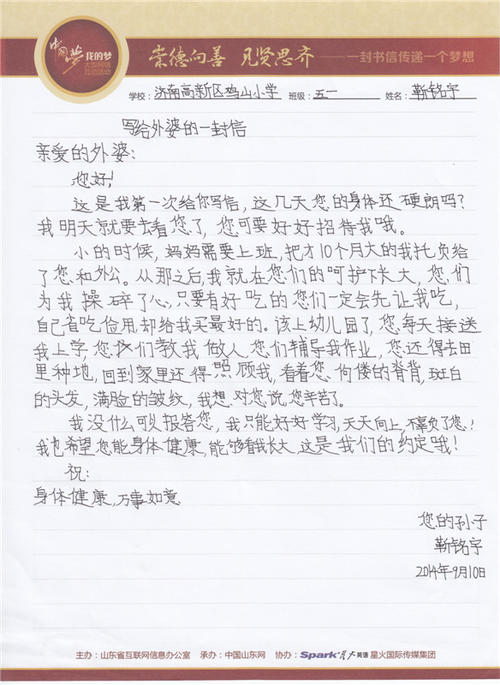 中国梦 我的梦
大型网络
互动活动
崇德向善 见贤思齐 ——一封书信传递一个梦想
学校：济南高新区鸡山小学 班级：五一 姓名：靳铭宇
写给外婆的一封信
亲爱的外婆：
您好！
这是我第一次给你写信，这几天您的身体还硬朗吗？
我明天就要去看您了，您可要好好招待我哦。
小的时候，妈妈需要上班，把才10个月大的我托负给
了您和外公。从那之后，我就在您们的呵护下长大，您们
为我操碎了心，只要有好吃的您们一定会先让我吃，
自己省吃俭用却给我买最好的。该上幼儿园了，您每天接送
我上学，您们教我做人，您们辅导我作业，您还得去田
里种地，回到家里还得照顾我，看着您佝偻的脊背，斑白
的头发，满脸的皱纹，我想对您说，您辛苦了。
我没什么可以报答您，我只能好好学习，天天向上，不辜负了您！
我也希望您能身体健康，能够看我长大，这是我们的约定哦！
祝：
身体健康，万事如意
您的孙子
靳铭宇
2014年9月10日
主办：山东省互联网信息办公室 承办：中国山东网 协办：Spark星火英语 星火国际传媒集团